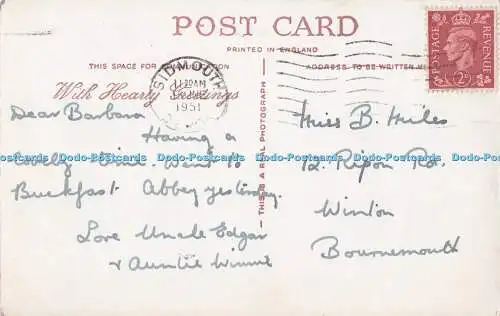 POST CARD
PRINTED IN ENGLAND
THIS SPACE FOR COMMUNICATION
ADDRESS TO BE WRITTEN
With Hearty Greetings
SIDMOUTH
11-30AM
1951
POSTAGE
REVENUE
2D
THIS IS A REAL PHOTOGRAPH
Dear Barbara
Having a
lovely time. Went to
Buckfast Abbey yesterday.
Love Uncle Edgar
& Auntie Winnie
Miss B. Miles
12. Ripon Rd.
Winton
Bournemouth
Dodo-Postcards Dodo-Postcards Dodo-Postcards Dodo-Postcards Dodo-Postcards Dodo-Postcards